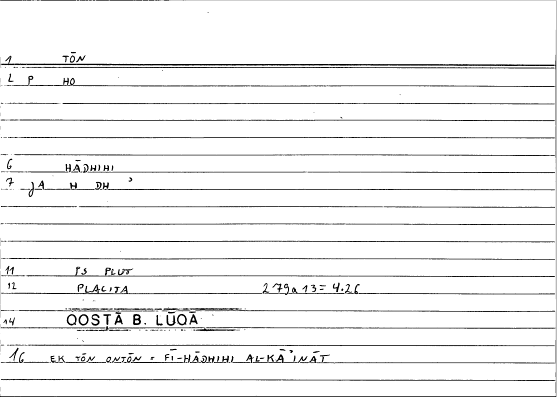 1 TŌN
L P HO
6 HĀDHIHI
7 JA H DH ʾ
11 PS PLUT
12 PLACITA 279a13 = 4.26
14 QOSṬĀ B. LŪQĀ
16 EK TŌN ONTŌN = FĪ-HĀDHIHI AL-KĀʾINĀT